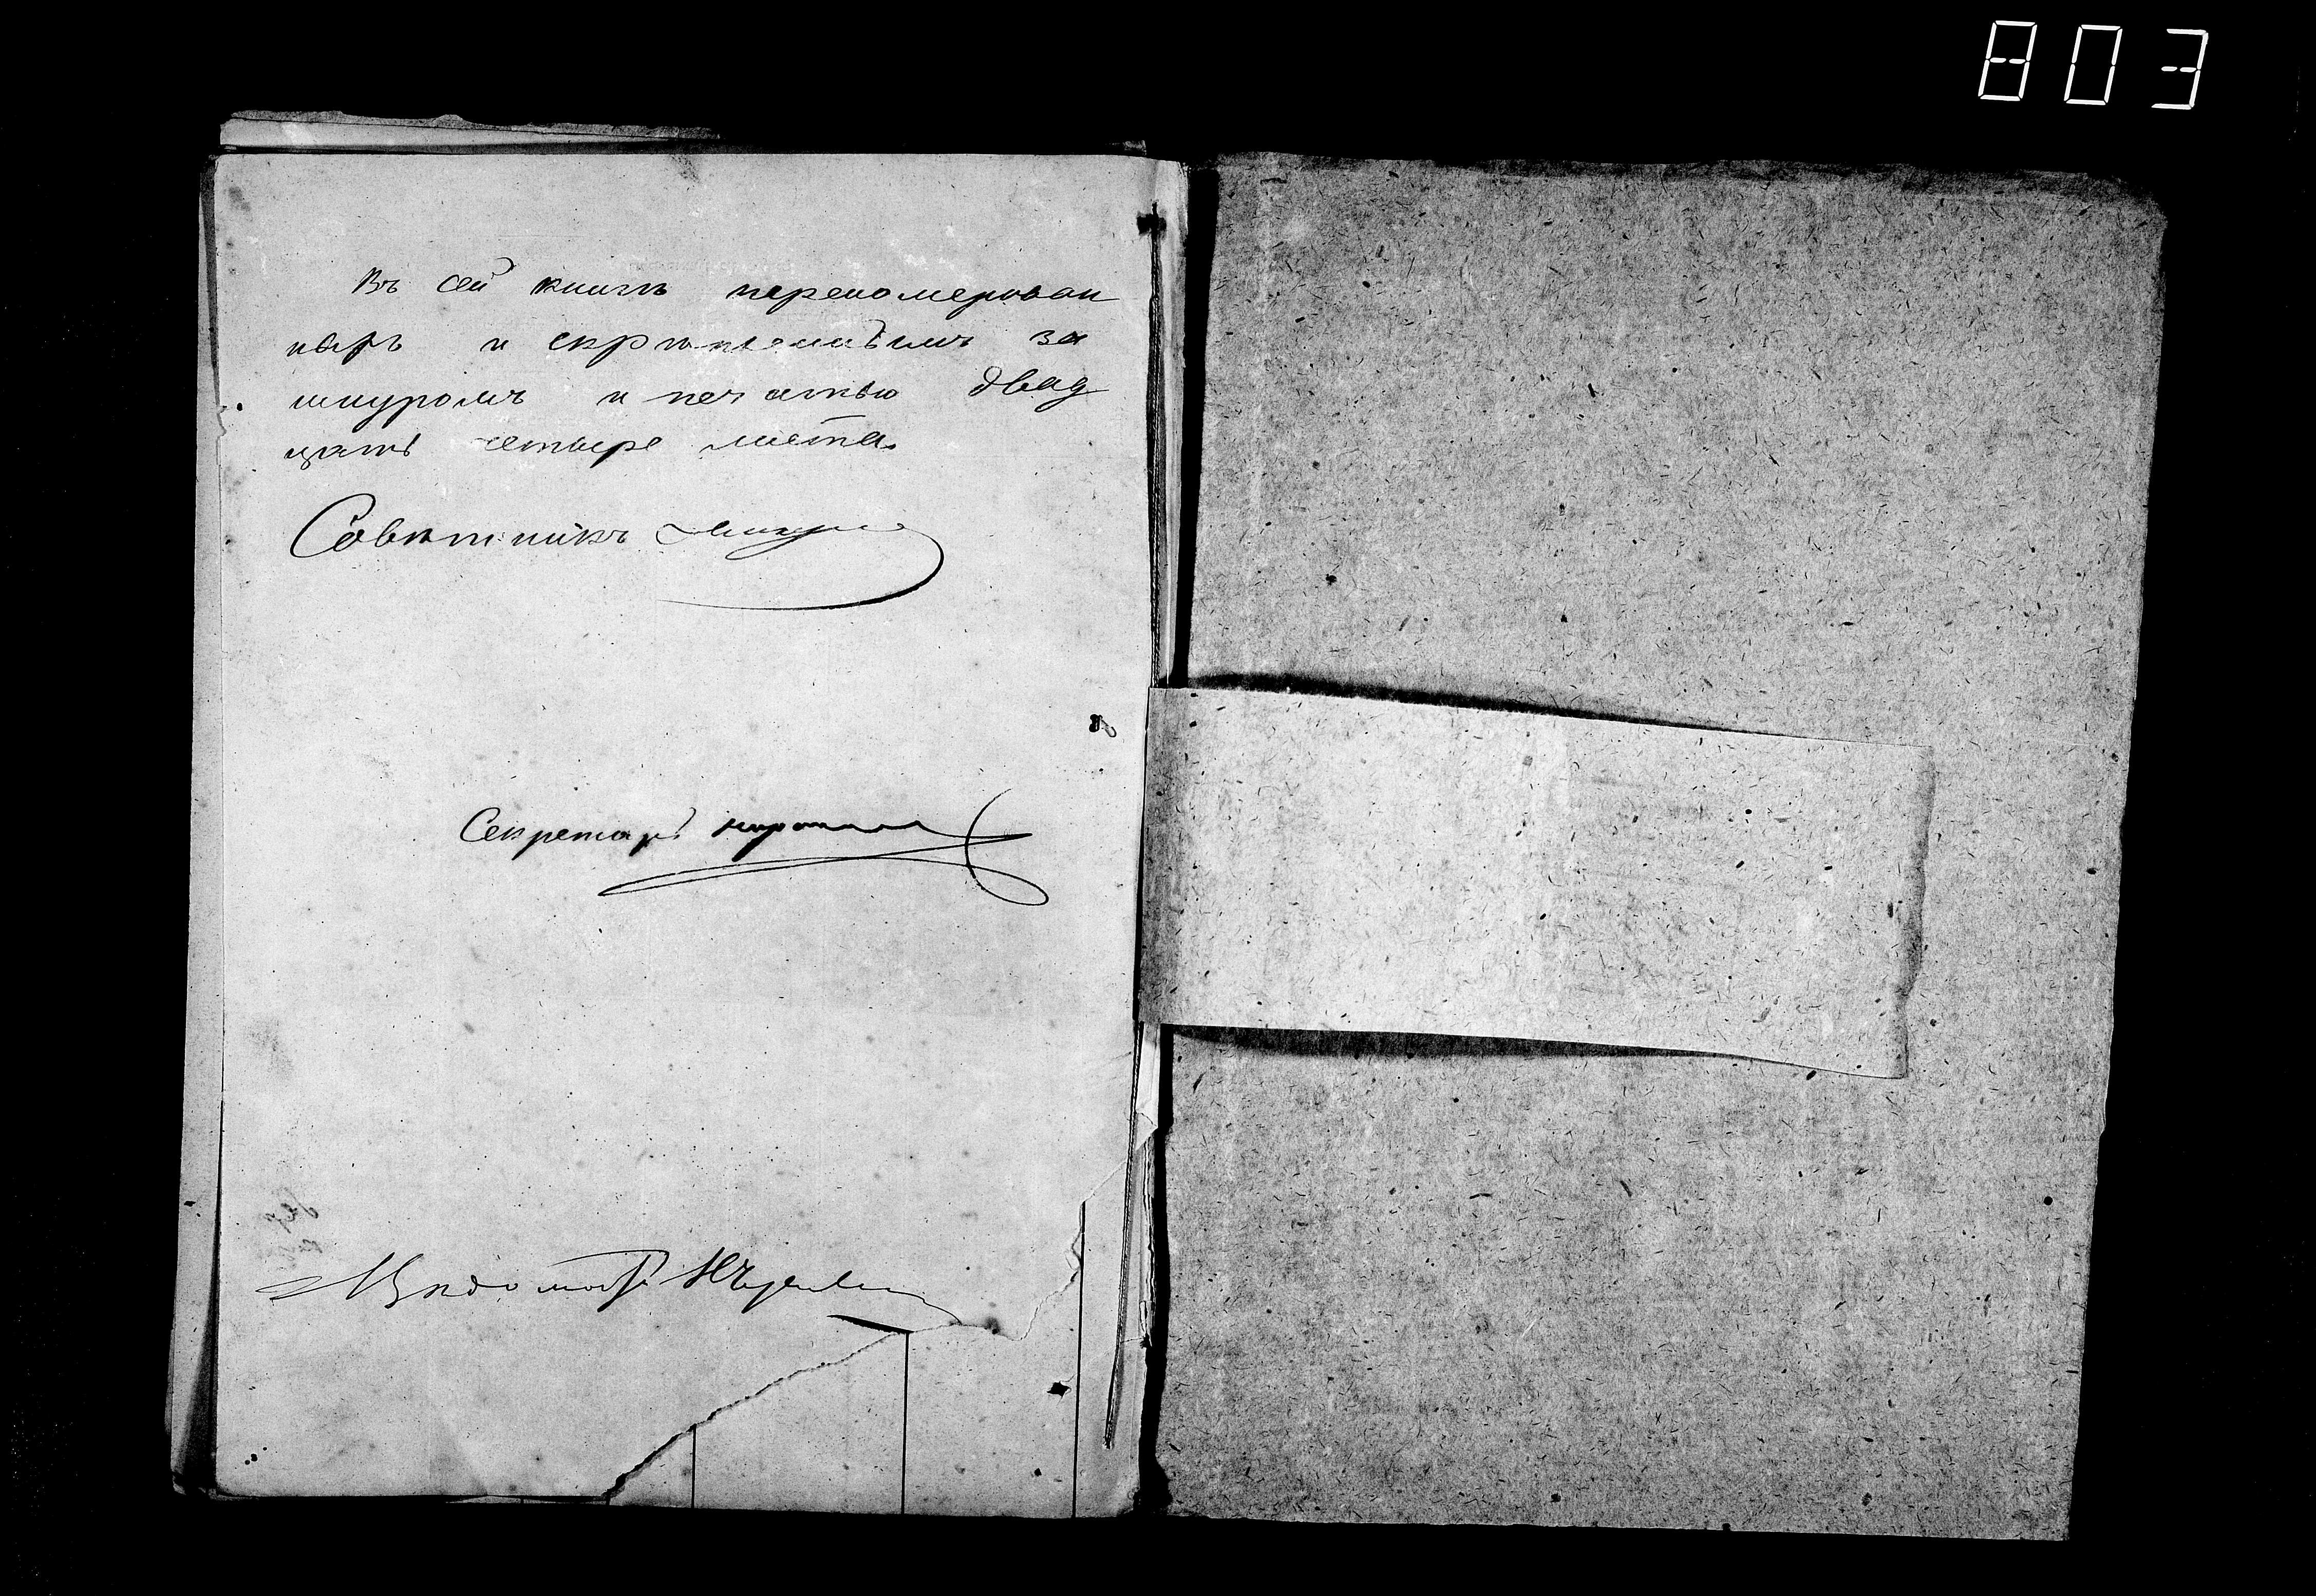 803
Въ сей книгѣ перепомерован
ныхъ и скрѣпленнымъ за
шнуромъ и печатью двад
цать четыре листа.
Совѣтникъ
Секретарь